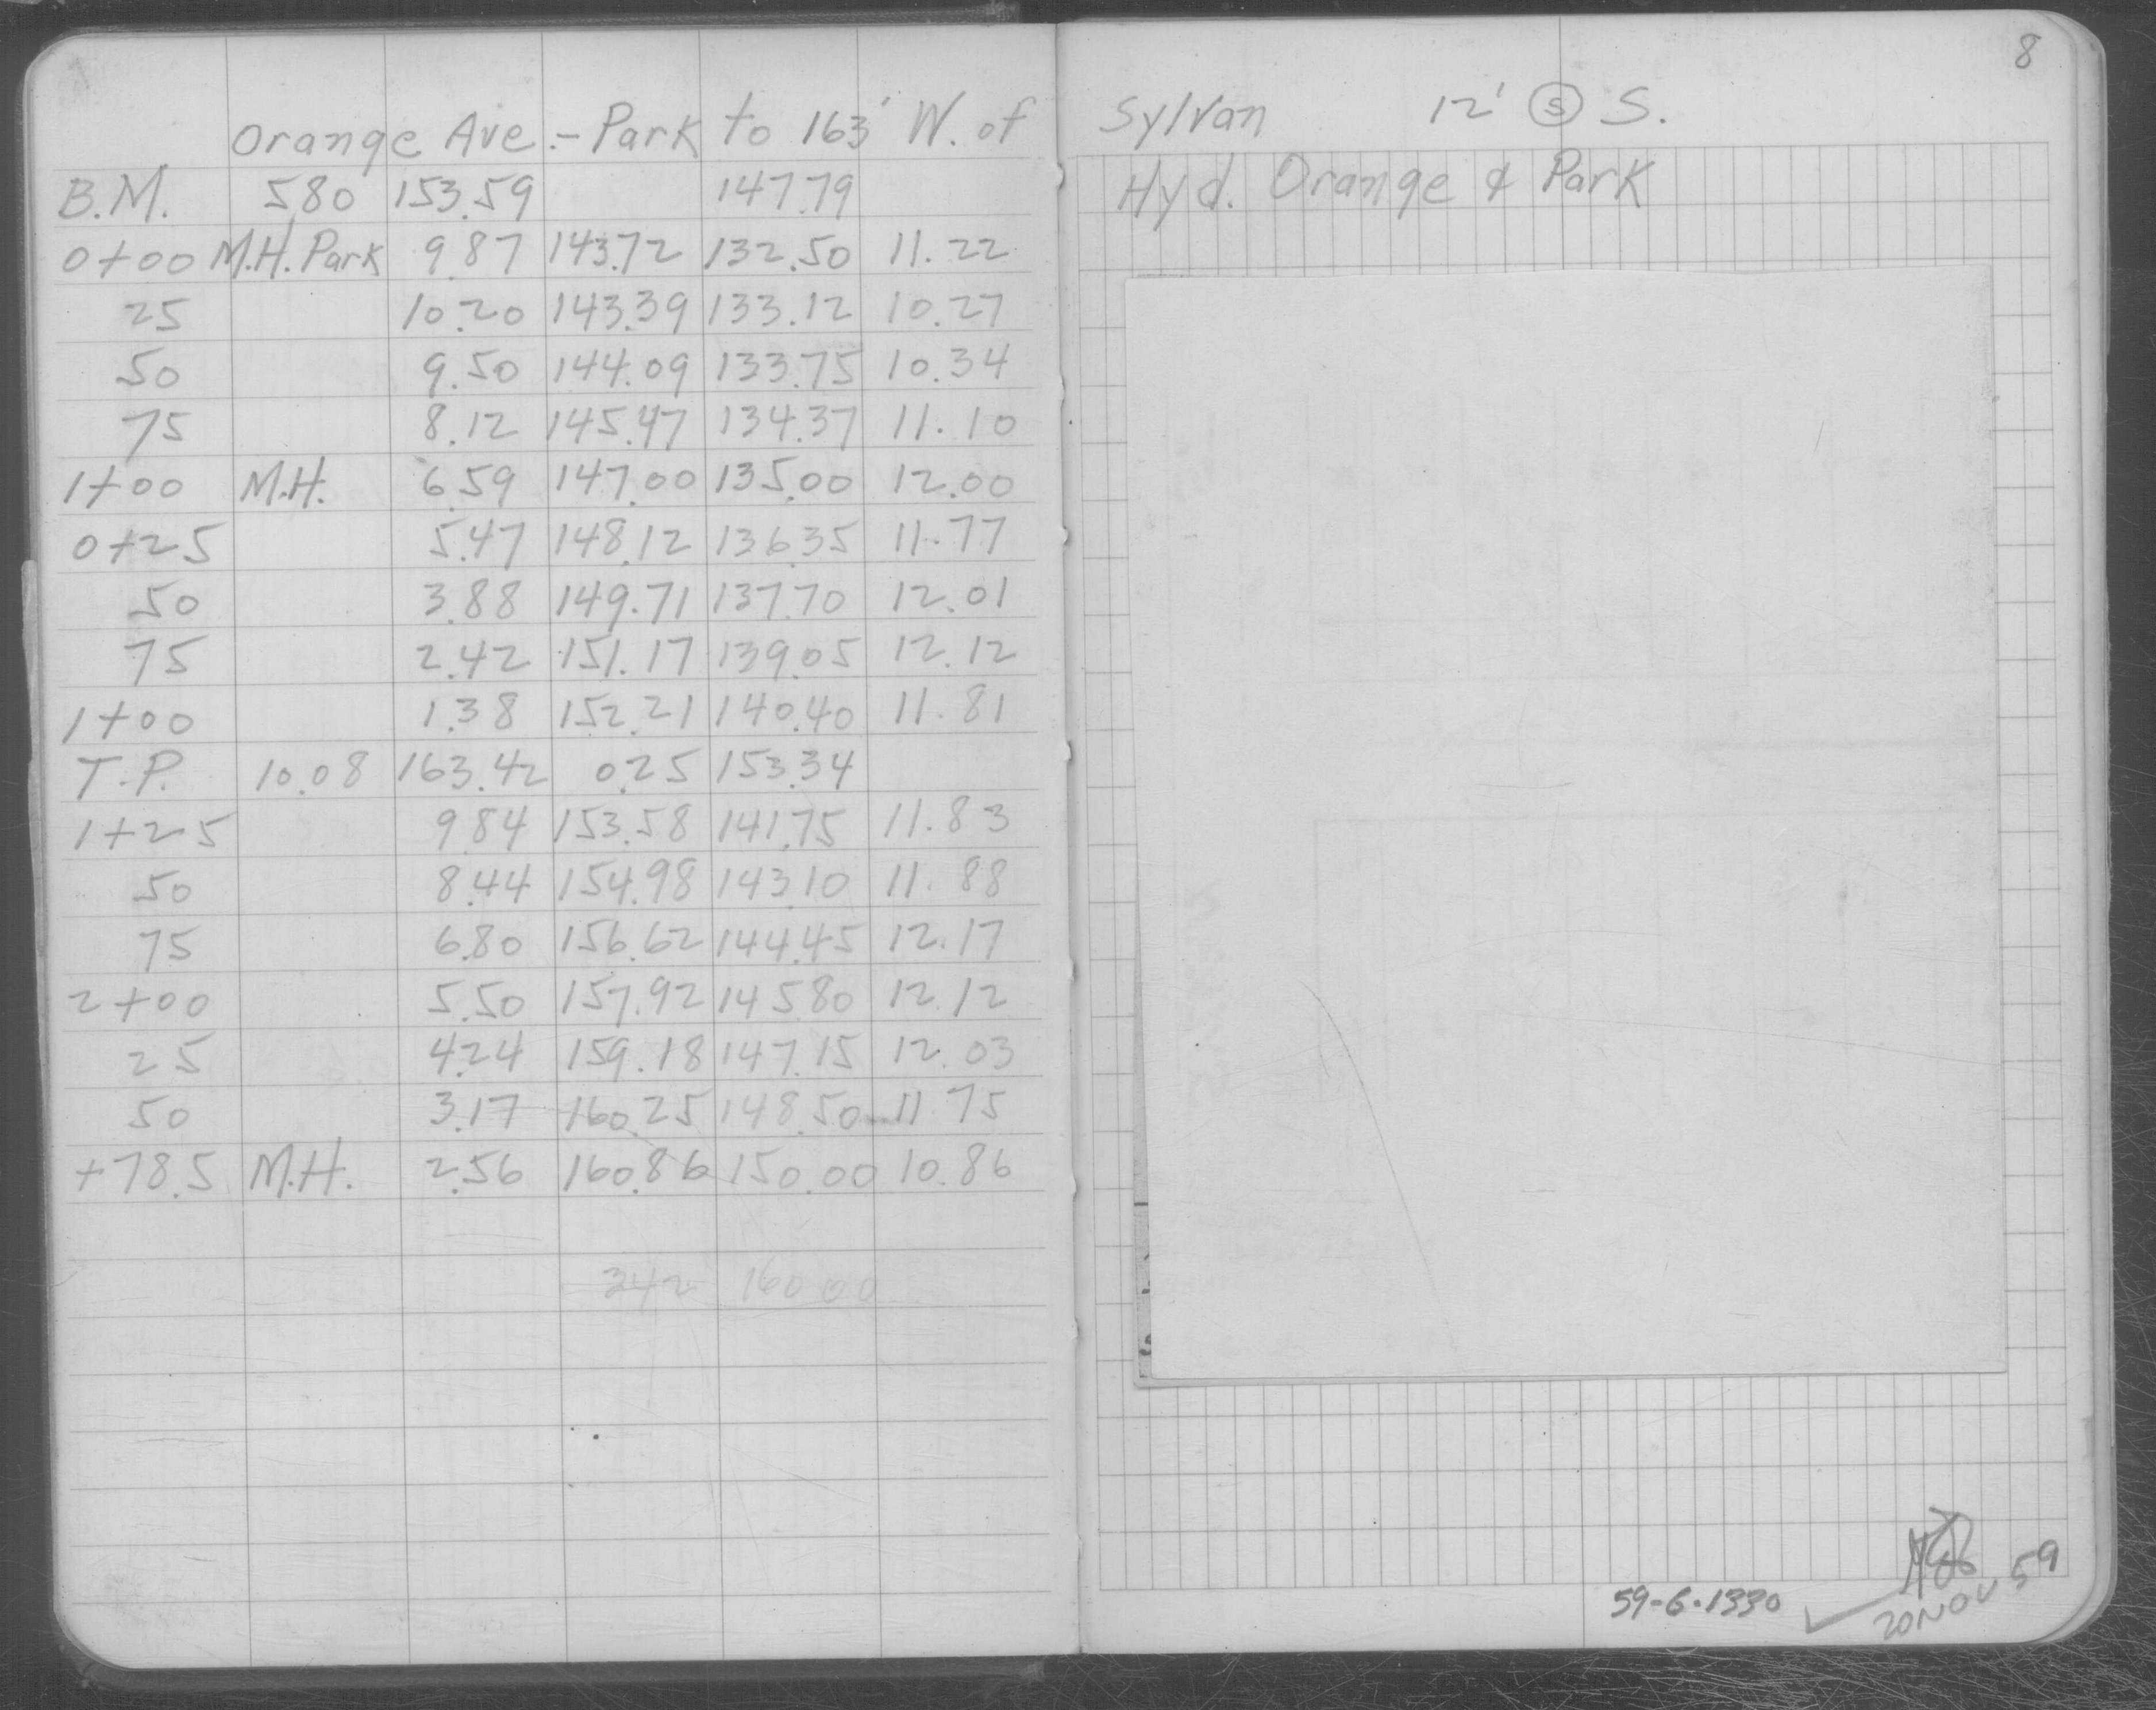 8
Orange Ave. - Park to 163' W. of Sylvan 12' Ⓢ S.
B.M. 5.80 153.59 147.79 Hyd. Orange & Park
0+00 M.H. Park 9.87 143.72 132.50 11.22
25 10.20 143.39 133.12 10.27
50 9.50 144.09 133.75 10.34
75 8.12 145.47 134.37 11.10
1+00 M.H. 6.59 147.00 135.00 12.00
0+25 5.47 148.12 136.35 11.77
50 3.88 149.71 137.70 12.01
75 2.42 151.17 139.05 12.12
1+00 1.38 152.21 140.40 11.81
T.P. 10.08 163.42 0.25 153.34
1+25 9.84 153.58 141.75 11.83
50 8.44 154.98 143.10 11.88
75 6.80 156.62 144.45 12.17
2+00 5.50 157.92 145.80 12.12
25 4.24 159.18 147.15 12.03
50 3.17 160.25 148.50 11.75
+78.5 M.H. 2.56 160.86 150.00 10.86
342 160.00
59-6-1330
20NOV59